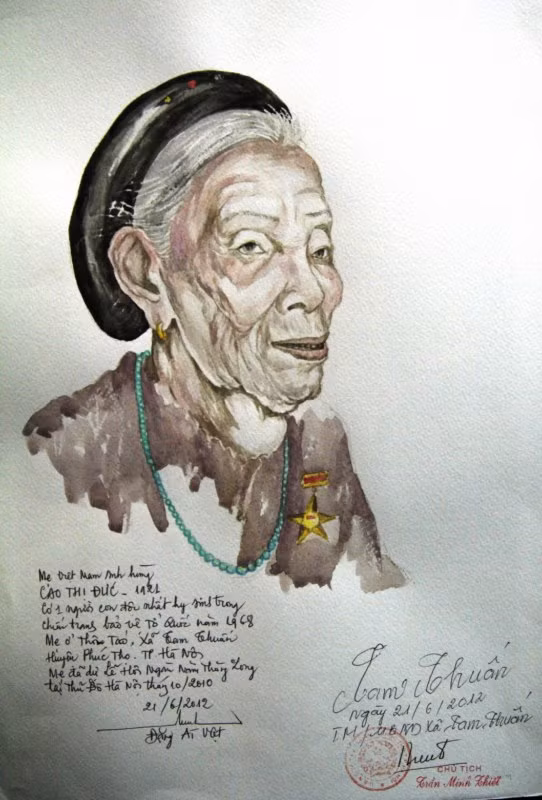 Mẹ Việt Nam Anh hùng
CAO THỊ ĐỨC - 1921
Có 1 người con độc nhất hy sinh trong
chiến tranh bảo vệ Tổ Quốc năm 1968
Mẹ ở Thôn Táo, Xã Tam Thuấn
Huyện Phúc Thọ. TP Hà Nội
Mẹ đã dự Lễ Hội Ngàn Năm Thăng Long
tại Thủ Đô Hà Nội tháng 10/2010
21/6/2012
Đặng Ái Việt
Tam Thuấn
ngày 21/6/2012
TM/UBND Xã Tam Thuấn
CHỦ TỊCH
Trần Minh Thiết